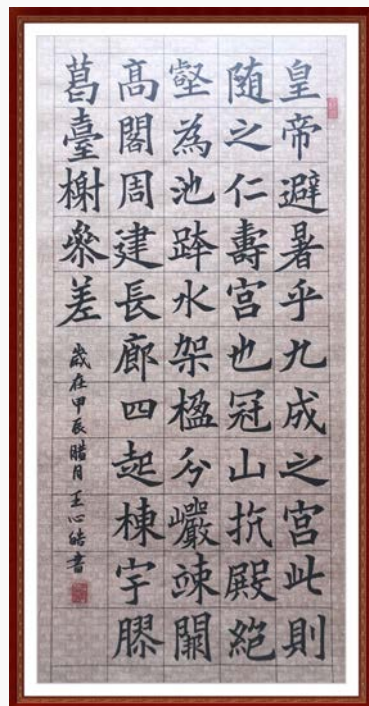 皇帝避暑乎九成之宮此則
隨之仁壽宮也冠山抗殿絕
壑為池跨水架楹分巖竦闕
高閣周建長廊四起棟宇膠
葛臺榭參差
歲在甲辰臘月王心皓書